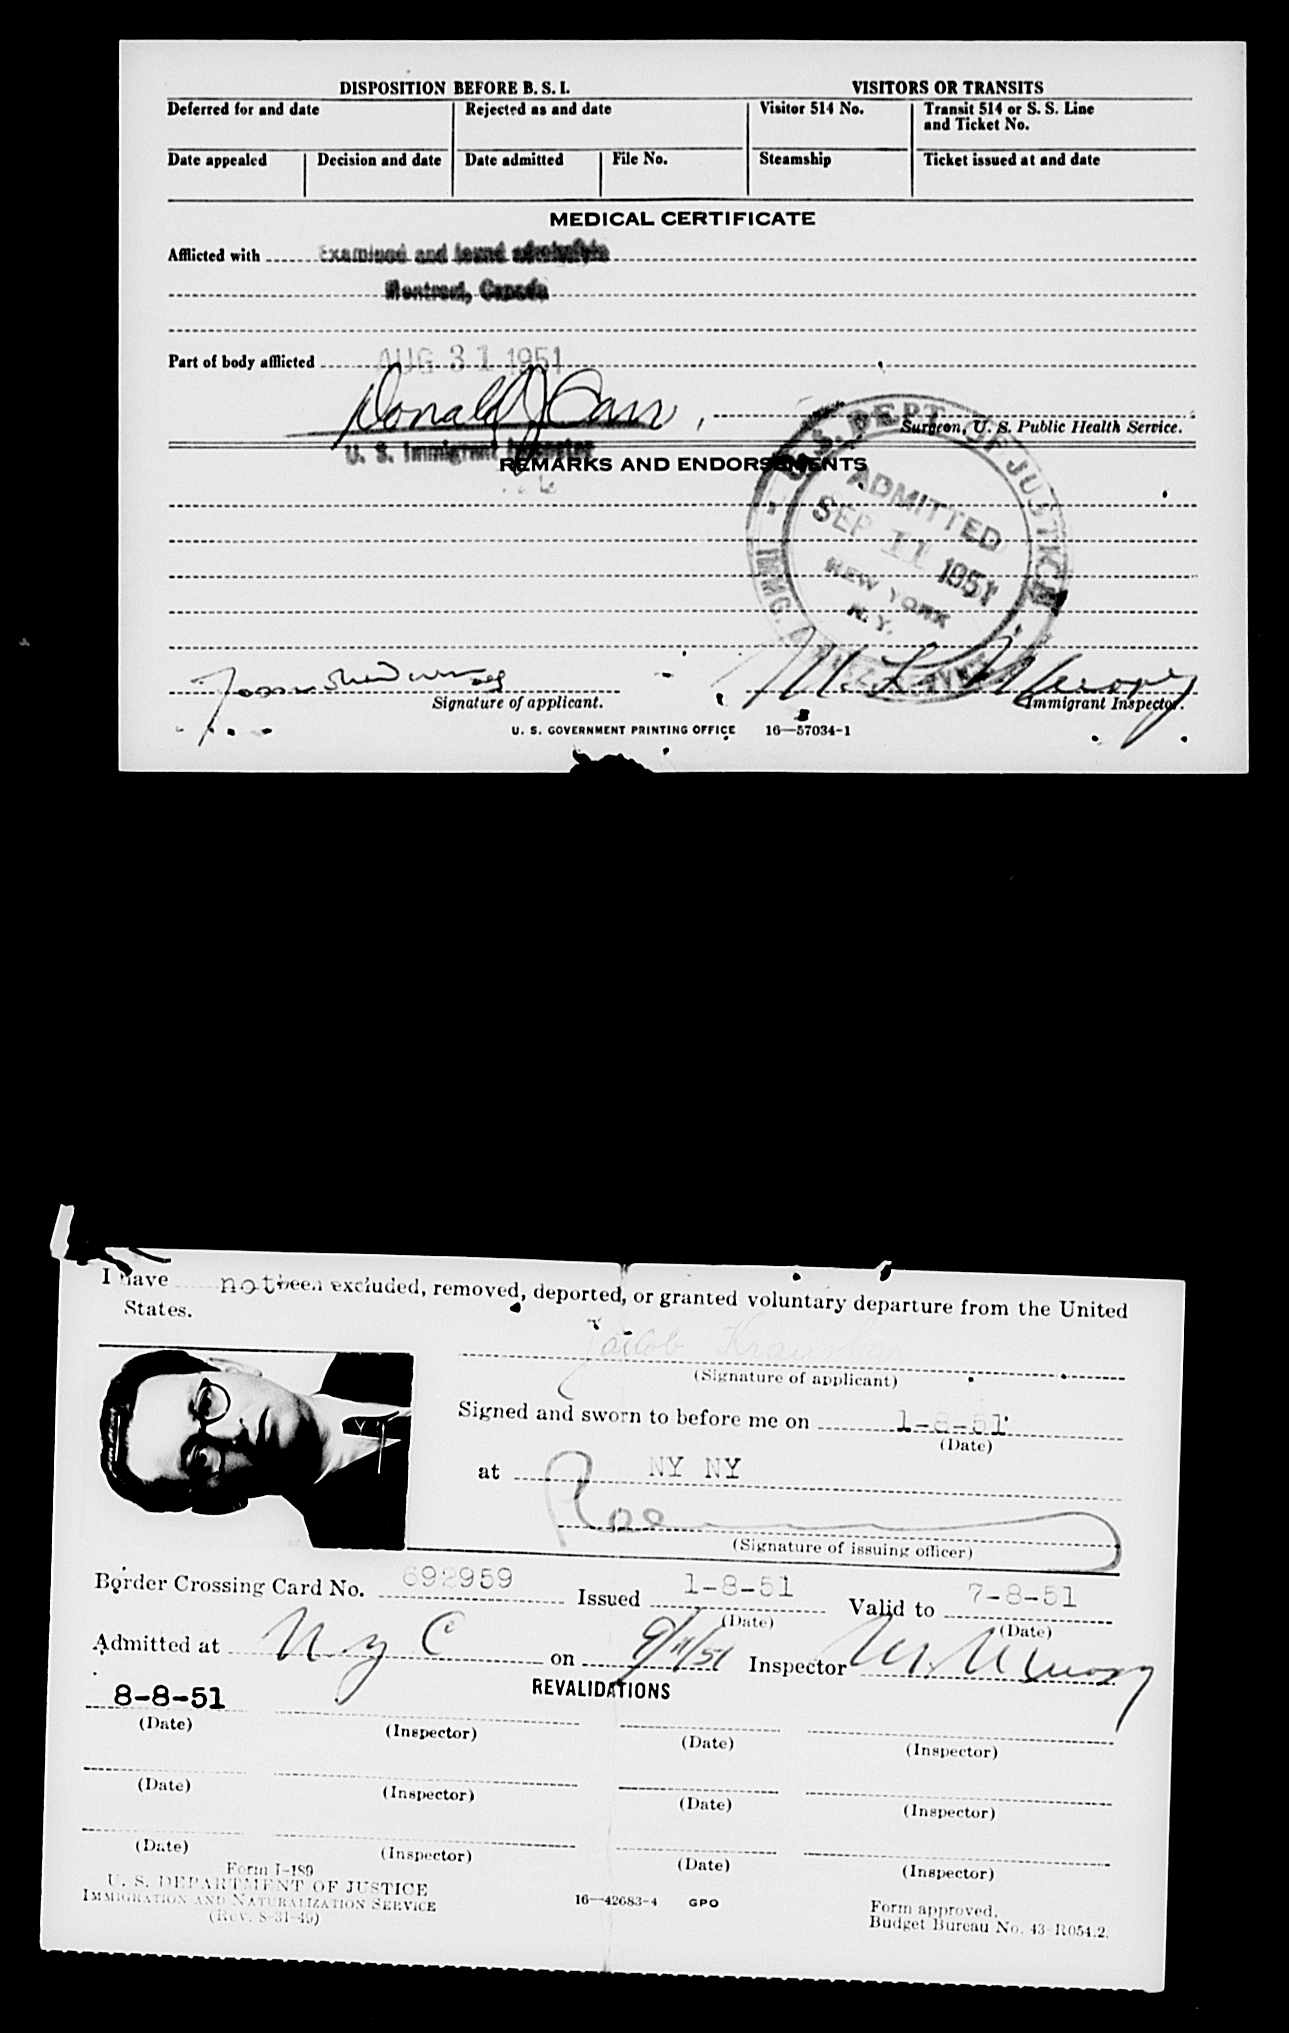 DISPOSITION BEFORE B. S. I.
VISITORS OR TRANSITS
Deferred for and date
Rejected as and date
Visitor 514 No.
Transit 514 or S. S. Line
and Ticket No.
Date appealed
Decision and date
Date admitted
File No.
Steamship
Ticket issued at and date
MEDICAL CERTIFICATE
Afflicted with Examined and found admissible
Montreal, Canada
Part of body afflicted AUG 31 1951
Donald J Carr
Surgeon, U. S. Public Health Service.
U. S. Immigrant Inspector
REMARKS AND ENDORSEMENTS
U. S. DEPT. OF JUSTICE
ADMITTED
SEP 11 1951
NEW YORK
N. Y.
IMMG.
Signature of applicant.
Immigrant Inspector.
U. S. GOVERNMENT PRINTING OFFICE 16—57034-1
I have not been excluded, removed, deported, or granted voluntary departure from the United
States.
Jacob
(Signature of applicant)
Signed and sworn to before me on 1-8-51
(Date)
at NY NY
(Signature of issuing officer)
Border Crossing Card No. 692959 Issued 1-8-51 Valid to 7-8-51
(Date)
(Date)
Admitted at N.Y.C on 9/11/51 Inspector
REVALIDATIONS
8-8-51
(Date) (Inspector) (Date) (Inspector)
(Date) (Inspector) (Date) (Inspector)
(Date) (Inspector) (Date) (Inspector)
Form I-189
U. S. DEPARTMENT OF JUSTICE
IMMIGRATION AND NATURALIZATION SERVICE
(Rev. 8-31-49)
16—42683-4 GPO
Form approved.
Budget Bureau No. 43-R054.2.